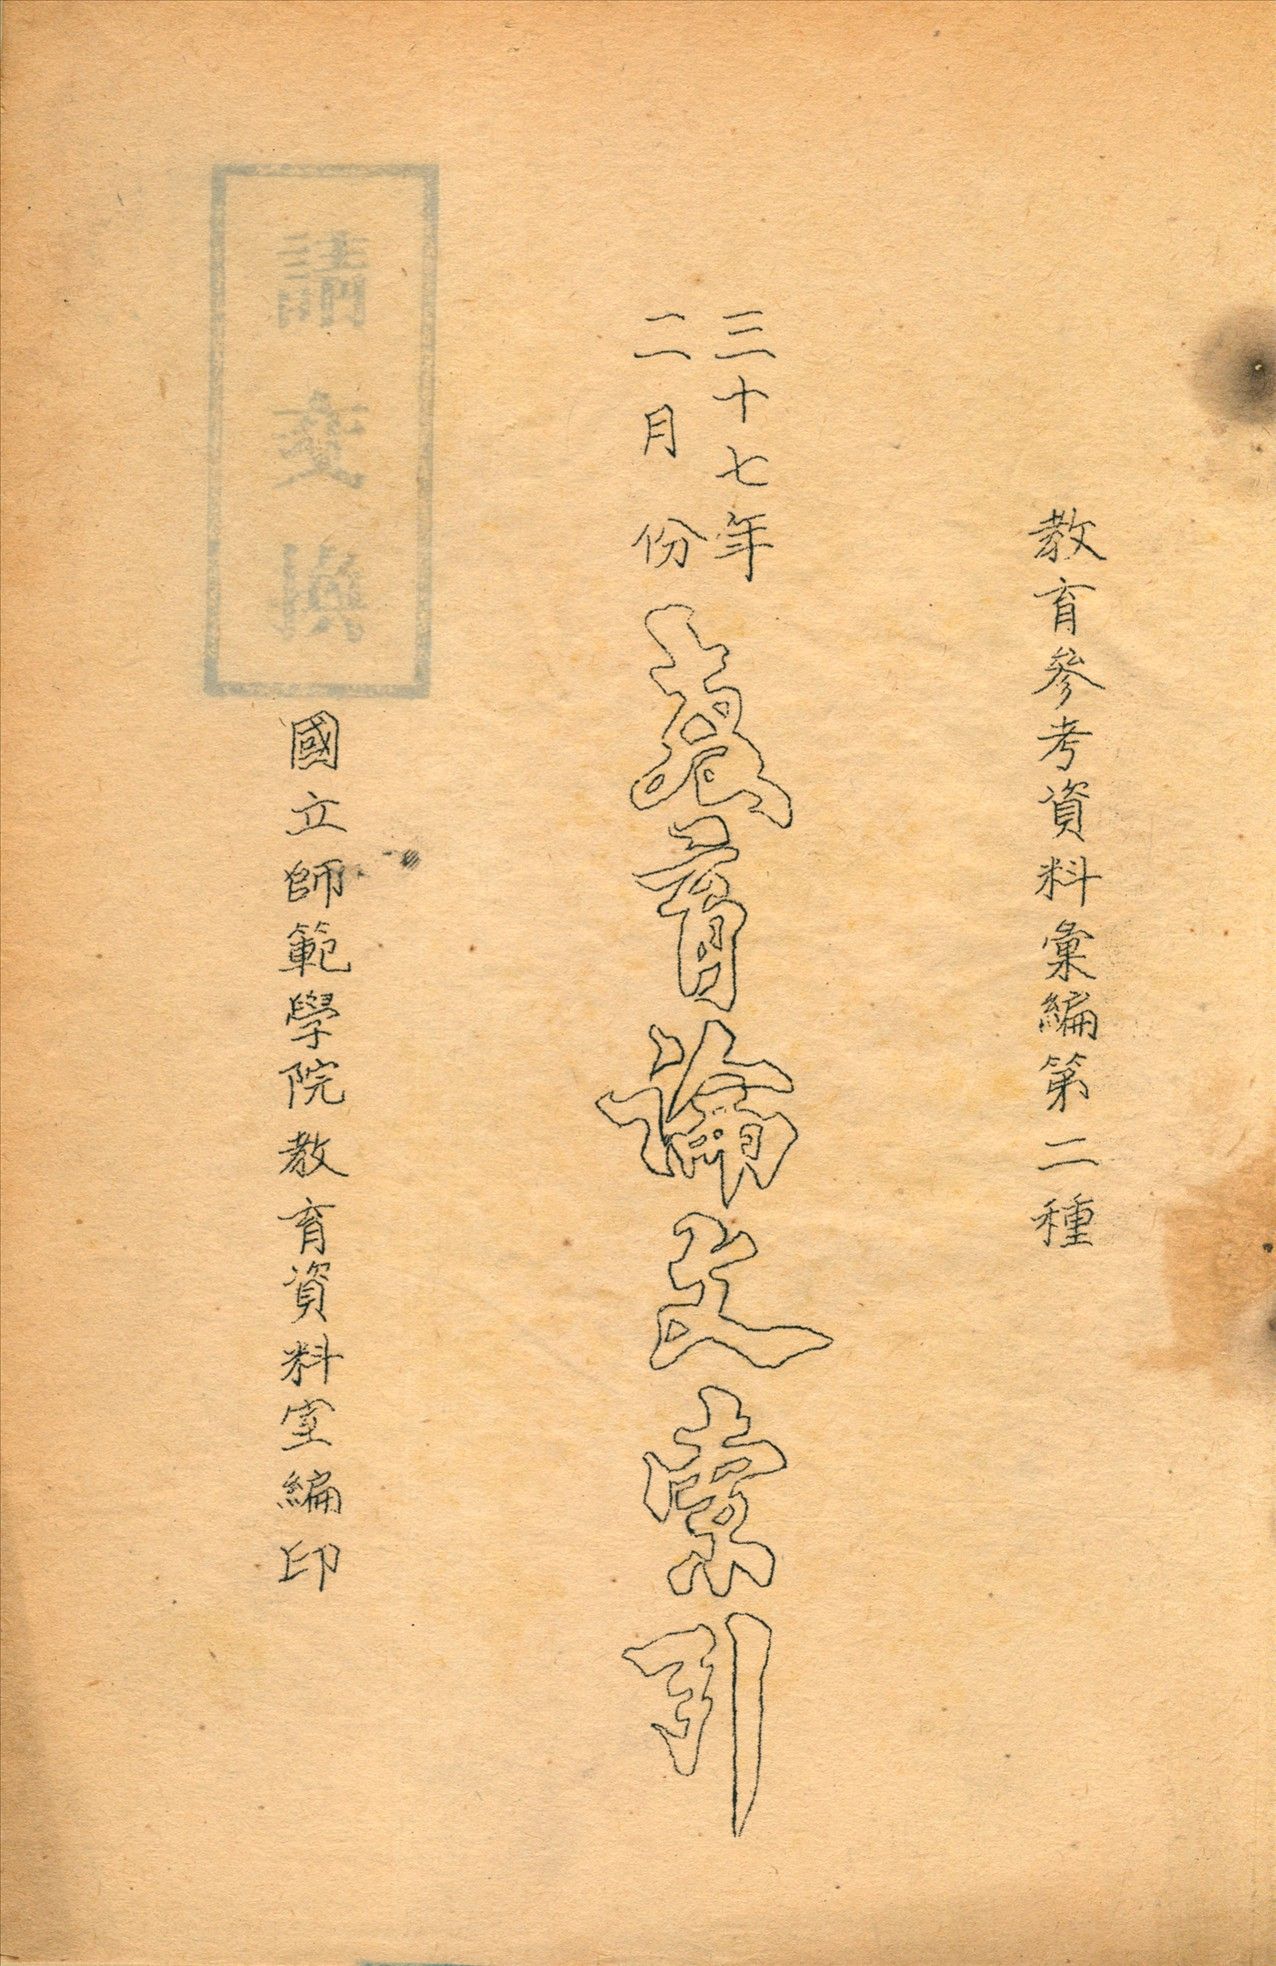 教育參考資料彙編第二種
三十七年
二月份
教育論文索引
國立師範學院教育資料室編印
請交換